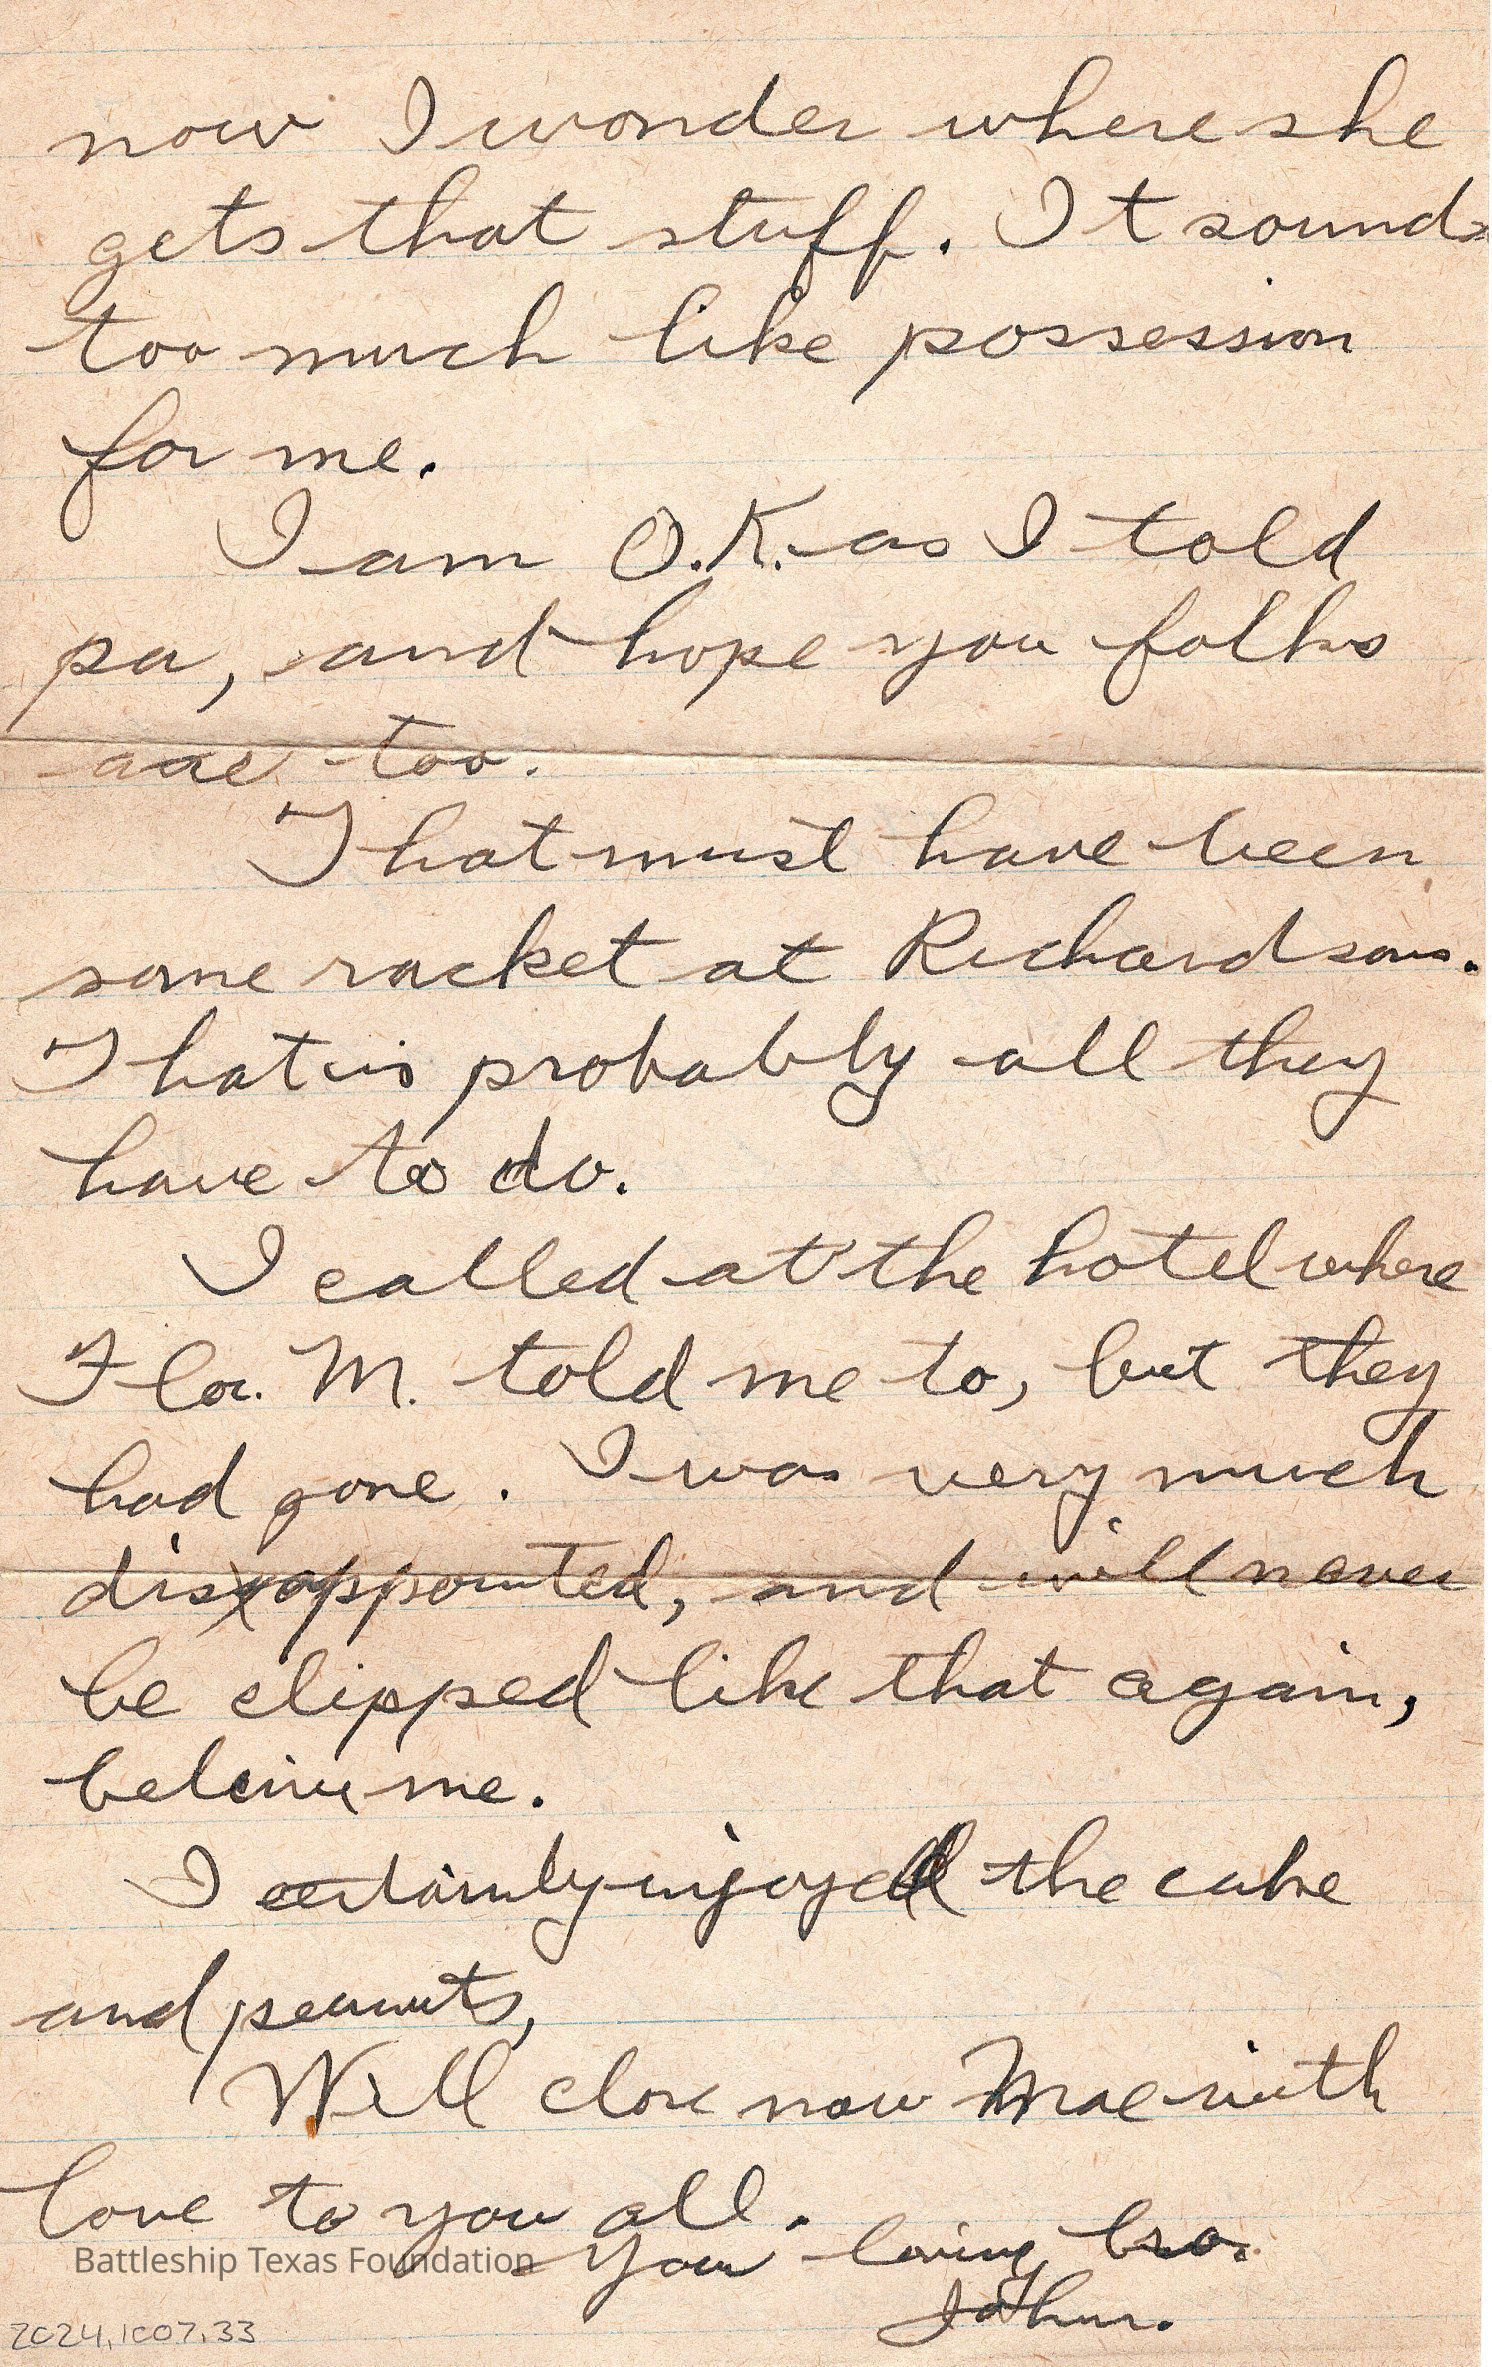 now I wonder where she
gets that stuff. It sounds
too much like possession
for me.
I am O.K. as I told
pa, and hope you folks
are too.
That must have been
some racket at Richardsons.
That is probably all they
have to do.
I called at the hotel where
Flor. M. told me to, but they
had gone. I was very much
disappointed, and will never
be clipped like that again,
beleive me.
I certainly injoyed the cake
and peanuts,
Well close now Mae with
love to you all.
Your loving bro.
John.
Battleship Texas Foundation
2024.1007.33